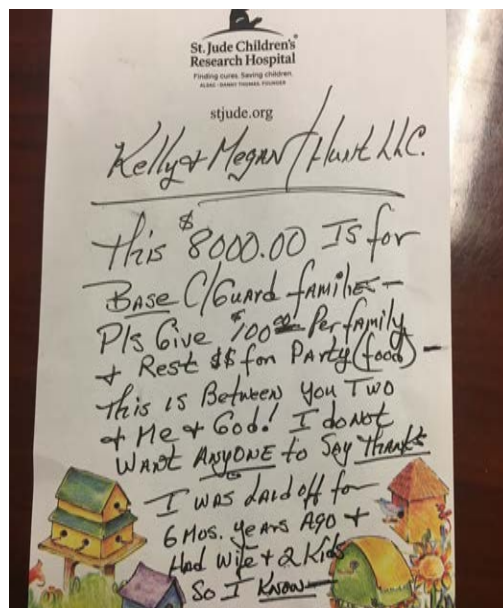 St. Jude Children's
Research Hospital
Finding cures. Saving children.
ALSAC • DANNY THOMAS, FOUNDER
stjude.org
Kelly & Megan / Hunt LLC.
This $8000.00 Is for
Base C/Guard families –
Pls Give $100.00 Per family
+ Rest $$ for Party (food) –
This is Between you Two
+ Me + God! I do not
Want Anyone to Say Thanks
I was laid off for
6 Mos. years Ago +
Had Wife + 2 Kids
So I Know –